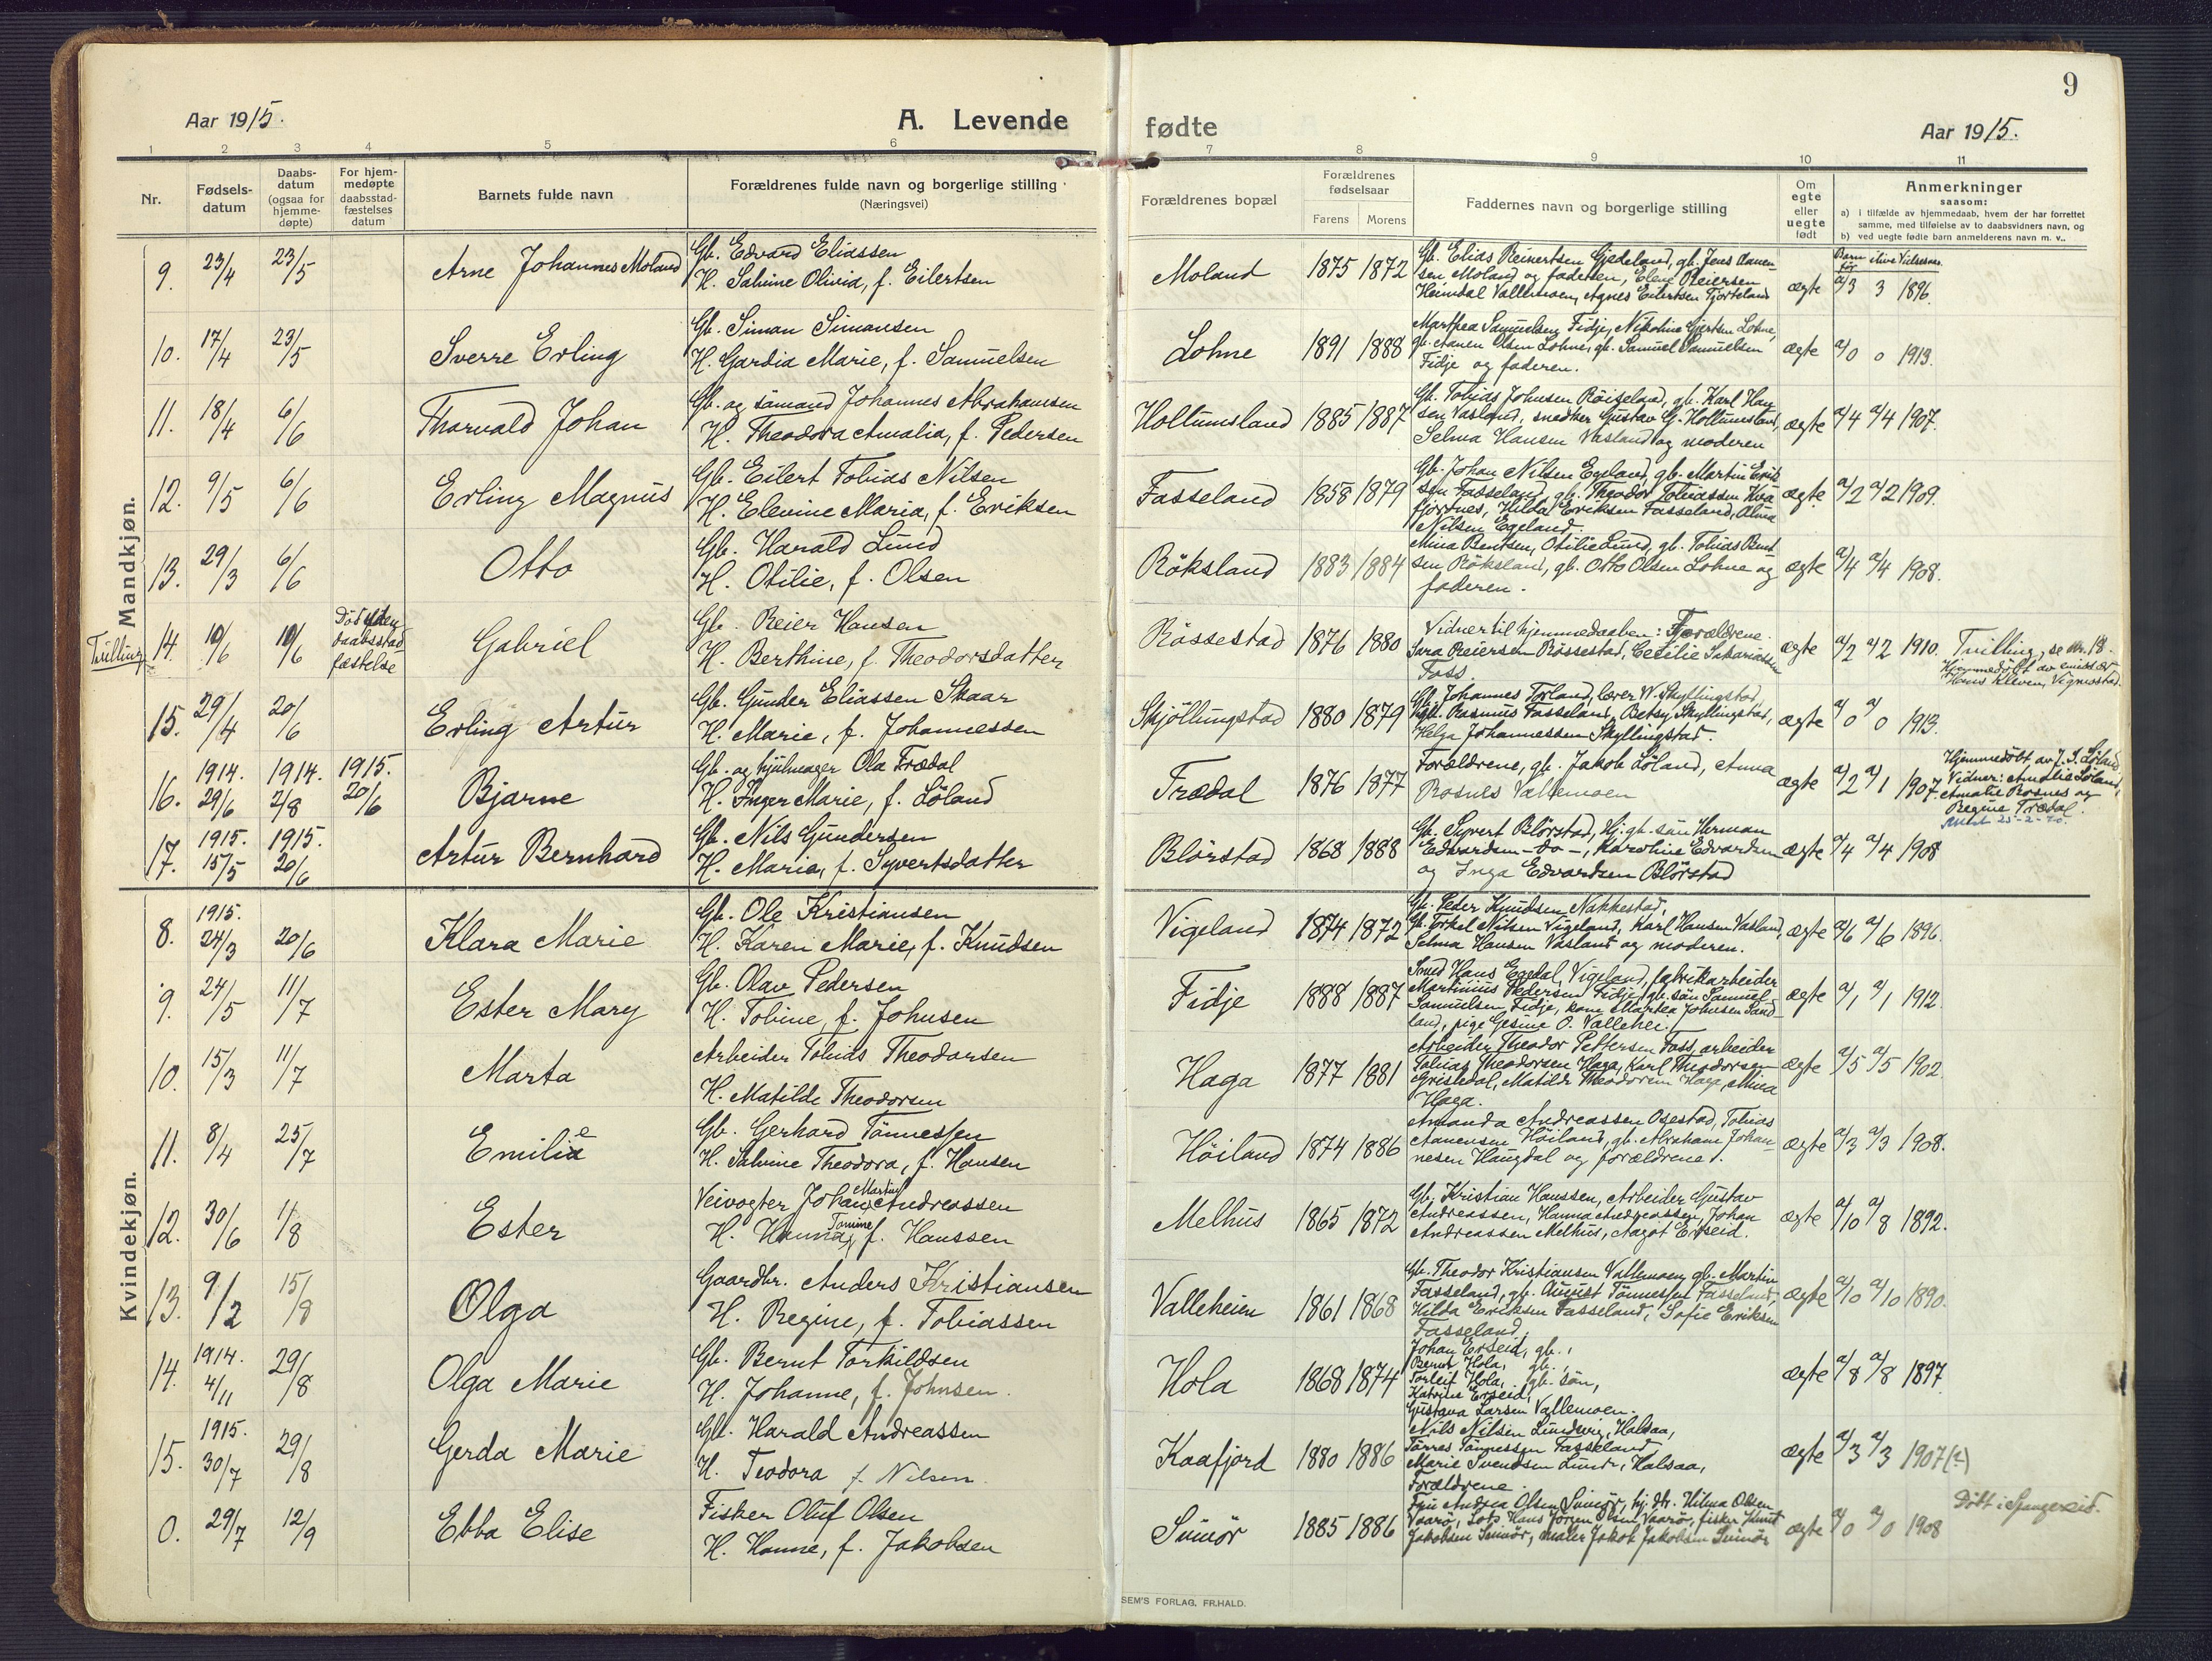 9
Aar 1915.
A. Levende
fødte
Aar 1915.
1 2 3 4 5 6 7 8 9 10 11
Nr.
Fødsels-
datum
Daabs-
datum
(ogsaa for
hjemme-
døpte)
For hjem-
medøpte
daabsstad-
fæstelses
datum
Barnets fulde navn
Forældrenes fulde navn og borgerlige stilling
(Næringsvei)
Forældrenes bopæl
Forældrenes
fødselsaar
Farens Morens
Faddernes navn og borgerlige stilling
Om
egte
eller
uegte
født
Anmerkninger
saasom:
a) i tilfælde av hjemmedaab, hvem der har forrettet
samme, med tilføielse av to daabsvidners navn, og
b) ved uegte fødte barn anmelderens navn m. v..
Mandkjøn.
9. 23/4 23/5 Arne Johannes Moland
Gb. Edvard Eliassen
H. Salvine Olivia, f. Eilertsen
Moland 1875 1872
Gb. Elias Reinertsen Gjedeland, gb. Jens Aanen-
sen Moland og faderen, Elene Reiersen
Heimdal Vallemoen, Agnes Eilertsen Fjorteland
ægte
a/3 3 1896.
10. 17/4 23/5 Sverre Erling
Gb. Simon Simonsen
H. Gardia Marie, f. Samuelsen
Lohne 1891 1888
Marthea Samuelsen Fidje, Nikoline Gjertsen Lohne,
gb. Aanen Olsen Lohne, gb. Samuel Samuelsen
Fidje og faderen.
ægte a/0 0 1913.
11. 18/4 6/6 Thorvald Johan
Gb. og sømand Johannes Abrahamsen
H. Theodora Amalia, f. Pedersen
Hollumsland 1885 1887
Gb. Tobias Johnsen Röiseland, gb. Karl Han
sen Vasland, snedker Gustav G. Hollumsland,
Selma Hansen Vasland og moderen
ægte a/4 a/4 1907.
12. 9/5 6/6 Erling Magnus
Gb. Eilert Tobias Nilsen
H. Elevine Maria, f. Eriksen
Fasseland 1858 1879
Gb. Johan Nilsen Egeland, gb. Martin Erik
sen Fasseland, gb. Theodor Tobiassen Kva
fjordnes, Hilda Eriksen Fasseland, Alma
Nilsen Egeland.
ægte a/2 a/2 1909.
13. 29/3 6/6 Otto
Gb. Harald Lund
H. Otilie, f. Olsen
Röksland 1883 1884
Mina Bentsen, Otilie Lund, gb. Tobias Bent
sen Röksland, gb. Otto Olsen Lohne og
faderen.
ægte a/4 a/4 1908.
Tvilling 14. 10/6 10/6
Död uden
daabsstad
fæstelse
Gabriel
Gb. Reier Hansen
H. Berthine, f. Theodorsdatter
Rössestad 1876 1880
Vidner til hjemmedaaben: Forældrene.
Sara Reiersen Rössestad, Cecilie Sakariassen
Foss.
ægte a/2 a/2 1910.
Tvilling, se nr. 18.
Hjemmedöbt av emissær
Hans Kleven, Vignestad.
15. 29/4 20/6 Erling Artur
Gb. Gunder Eliassen Skaar
H. Marie, f. Johannessen
Skjöllingstad 1880 1879
Gb. Johannes Torland, lærer W. Skyllingstad,
Rasmus Fasseland, Betsy Skyllingstad,
Helga Johannessen Skyllingstad.
ægte a/0 a/0 1913.
16. 1914. 29/6 1914. 2/8 1915. 20/6 Bjarne
Gb. og hjulmager Ola Trædal
H. Inger Marie, f. Löland
Trædal 1876 1877
Forældrene, gb. Jakob Löland, Anna
Rosnes Vallemoen
ægte a/2 a/1 1907.
Hjemmedöbt av J. S. Löland,
Vidner: Amalie Löland,
Amalie Rosnes og
Regine Trædal.
Attest 25-2-40.
17. 1915. 15/5 1915. 20/6 Artur Bernhard
Gb. Nils Gundersen
H. Maria, f. Syvertsdatter
Blörstad 1868 1888
Gb. Syvert Blörstad, Hj. gb. sön Herman
Edvardsen - do -, Karoline Edvardsen
og Inga Edvardsen Blörstad
ægte a/4 a/4 1908
Kvindekjøn.
8. 1915. 24/3 20/6 Klara Marie
Gb. Ole Kristiansen
H. Karen Marie, f. Knudsen
Vigeland 1874 1872
Gb. Peder Knudsen Nakkestad,
Gb. Torkel Nilsen Vigeland, Karl Hansen Vasland,
Selma Hansen Vasland og moderen.
ægte a/6 a/6 1896.
9. 24/5 11/7 Ester Mary
Gb. Olav Pedersen
H. Tobine, f. Johnsen
Fidje 1888 1887
Smed Hans Egedal, Vigeland, fabrikarbeider
Martinius Pedersen Fidje, gb. sön Samuel
Samuelsen Fidje, kone Martea Johnsen Sand-
land, pige Gesine O. Vallehei.
ægte a/1 a/1 1912.
10. 15/3 11/7 Marta
Arbeider Tobias Theodorsen
H. Matilde Theodorsen
Haga 1877 1881
Arbeider Theodor Pettersen Foss, arbeider
Tobias Theodorsen Haga, Karl Theodorsen
Grisledal, Matilde Theodorsen Haga, Mina
Haga.
ægte a/5 a/5 1902.
11. 8/4 25/7 Emilie
Gb. Gerhard Tönnessen
H. Salvine Theodora, f. Hansen
Höiland 1874 1886
Amanda Andreassen Osestad, Tobias
Aanensen Höiland, gb. Abraham Johan-
nesen Haugdal og forældrene.
ægte a/3 a/3 1908.
12. 30/6 1/8 Ester
Veivogter Johan Martin Andreassen
H. Hanna Tomine, f. Hanssen
Melhus 1865 1872
Gb. Kristian Hanssen, Arbeider Gustav
Andreassen, Hanna Andreassen, Johan
Andreassen Melhus, Aagot Erseid.
ægte a/10 a/8 1892.
13. 9/2 15/8 Olga
Gaardbr. Anders Kristiansen
H. Regine, f. Tobiassen
Valleheien 1861 1868
Gb. Theodor Kristiansen Vallemoen, gb. Martin
Fasseland, gb. August Tönnessen Fasseland,
Hilda Eriksen Fasseland, Sofie Eriksen
Fasseland.
ægte a/10 a/10 1890.
14. 1914. 4/11 29/8 Olga Marie
Gb. Bernt Torkildsen
H. Johanne, f. Johnsen.
Hola 1868 1874
Johan Erseid, gb.,
Bernt Hola, gb.,
Torleif Hola, gb. sön,
Katrine Erseid,
Gustava Larsen Vallemoen.
ægte a/8 a/8 1897.
15. 1915. 30/7 29/8 Gerda Marie
Gb. Harald Andreassen
H. Teodora f. Nilsen.
Kaafjord 1880 1886
Nils Nilsen Lundevig, Halsaa,
Törres Tönnessen Fasseland,
Marie Svendsen Lunde, Halsaa,
Forældrene.
ægte a/3 a/3 1907(?)
0. 29/7 12/9 Ebba Elise
Fisker Oluf Olsen
H. Hanne, f. Jakobsen
Svinör 1885 1886
Fru Andrea Olsen Svinör, hj. dtr. Hilma Olsen
Vaarö, Lods Hans Jörgen Olsen Vaarö, fisker Knut
Jakobsen Svinör, maler Jakob Jakobsen Svinör
ægte a/0 a/0 1908
Döbt i Spangereid.
SEM'S FORLAG, FR.HALD.